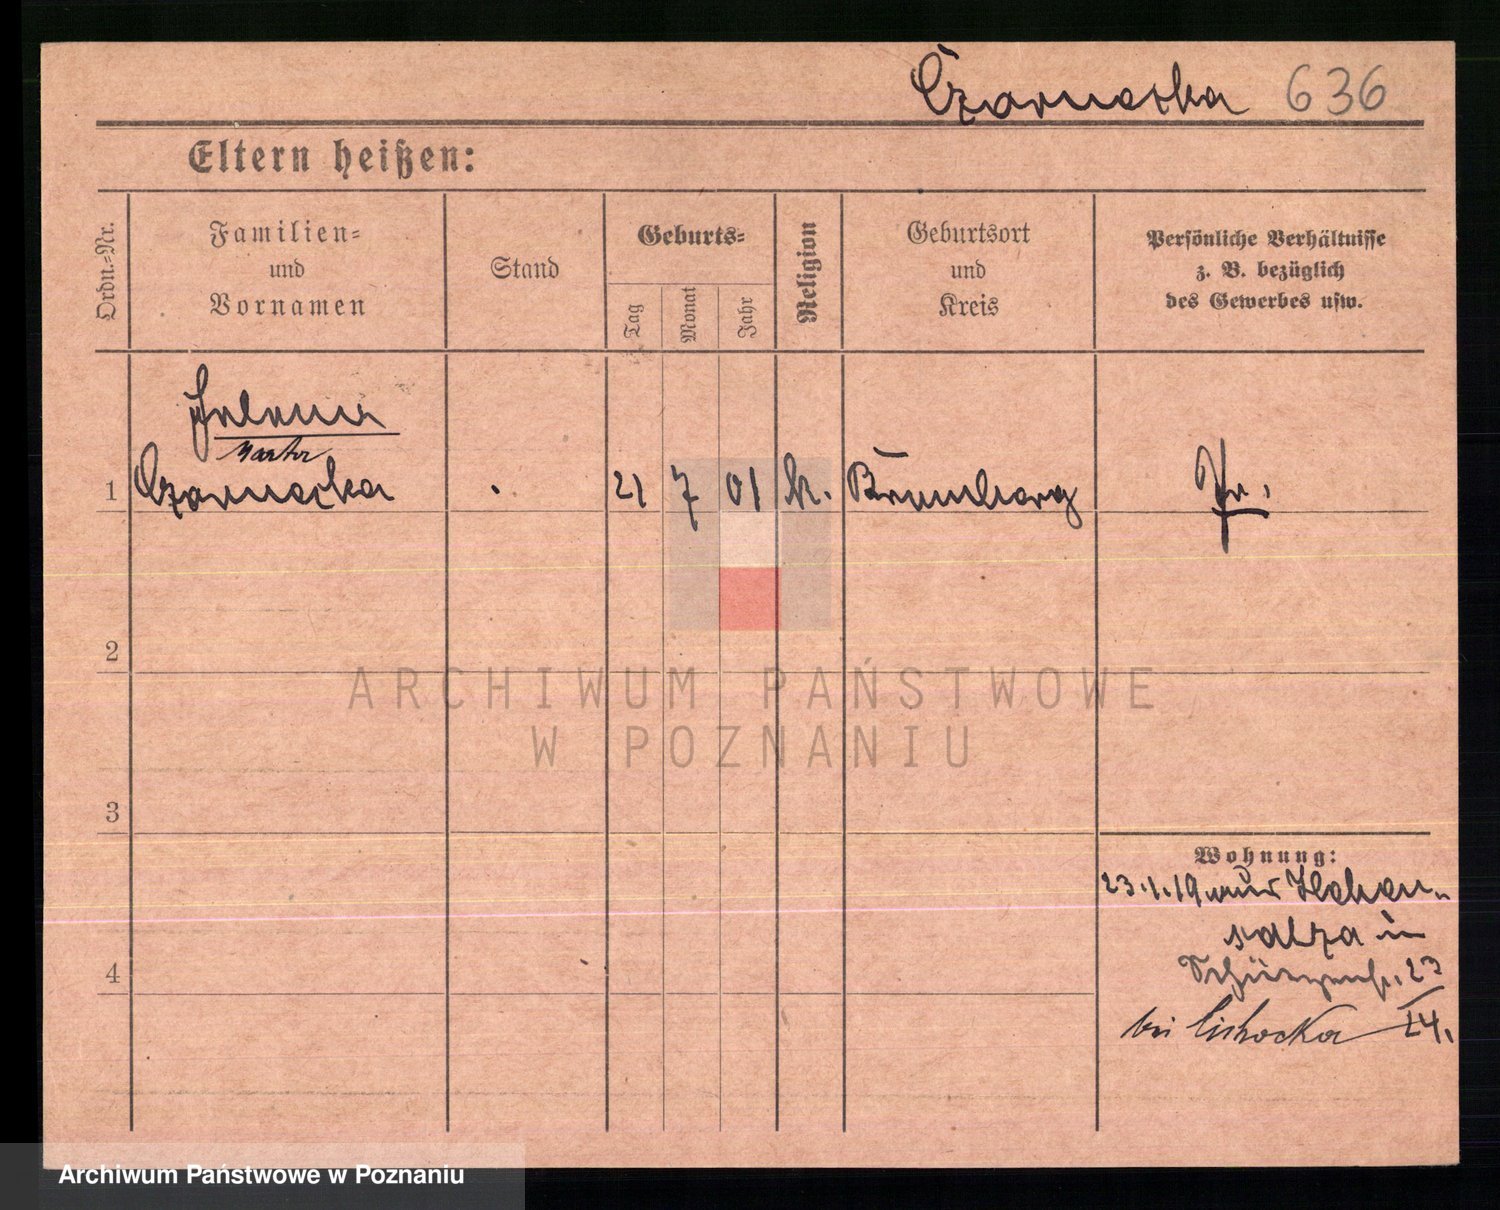 Czarnecka 636
Eltern heißen:
Ordn.-Nr.
Familien-
und
Vornamen
Stand
Geburts-
Tag
Monat
Jahr
Religion
Geburtsort
und
Kreis
Persönliche Verhältnisse
z. B. bezüglich
des Gewerbes usw.
Helena
Czarnecka
1
21 7 01 k. Bromberg Pr.
2
ARCHIWUM PAŃSTWOWE
W POZNANIU
3
Wohnung:
23.1.19 aus Hohen-
salza in
Schützenstr. 23
bei Cichocka
4
Archiwum Państwowe w Poznaniu